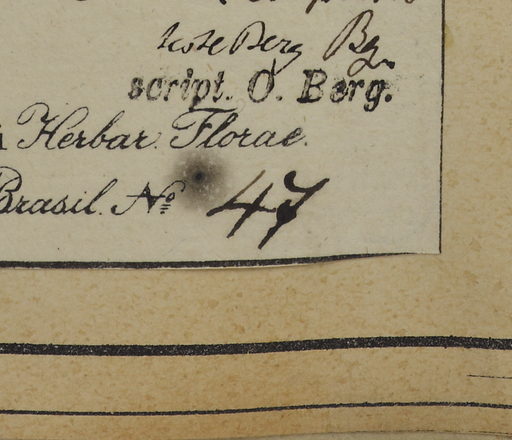 teste Berg Bg.
script. O. Berg.
Herbar. Florae.
Brasil. No 47